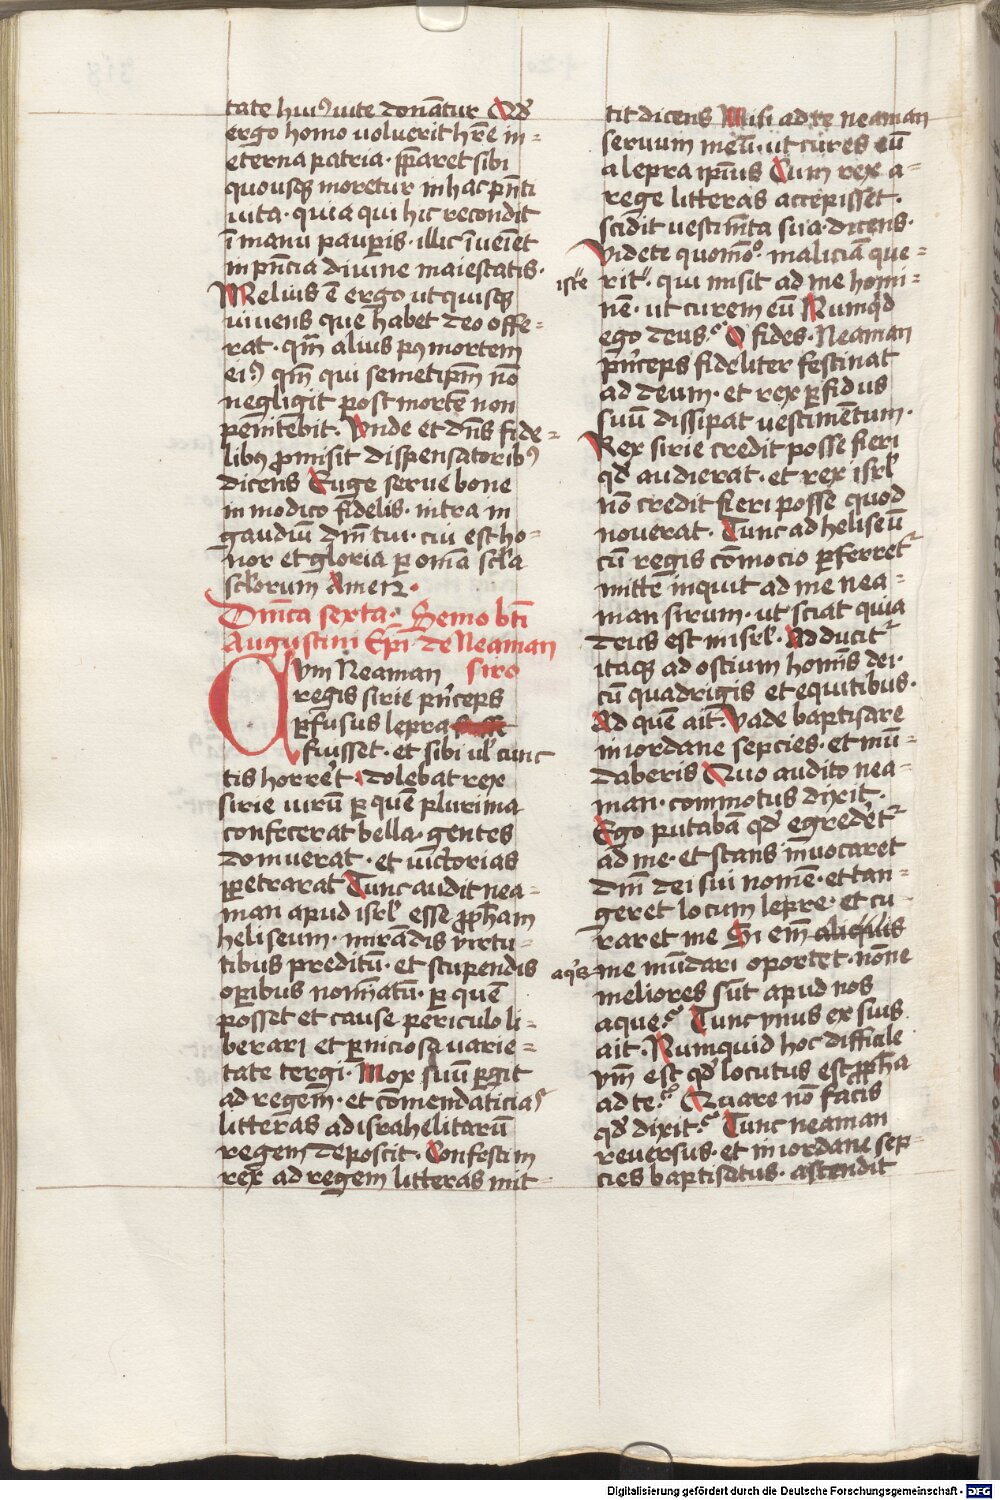 tate hui⁹ uite donātur Qd̕
ergo homo uoluerit hr̄e in=
eterna patria· p̄paret sibi
quousq̨ moretur in hac pn̄ti
uita· quia qui hic recondit
ī manu paup̲eris· illic īueīet
in pn̄cia diuine maiestatis·
Melius ē ergo ut quisq̨
uiuens que habet deo offe=
rat· qm̄ alius p⁹ mortem
ei⁹ qm̄ qui semetip̄m nō
negligit post mortē non
penitēbit· Vnde et dn̄s fide=
lib⁹ promisit dispensatorib⁹
dicens Euge serue bone
in modico fidelis· intra in
gaudiū dn̄i tui· cui est ho=
nor et gloria p̲ om̄ia scl̄a
scl̄orum Amen·
Dn̄ica sexta· Sermo bt̄i
Augustini Ep̄i de Neaman
siro
Cvm Neaman
regis sirie prīceps
p̲fusus lepra
fuisset· et sibi ul̕ cunc
tis horrer̄t· dolebat rex
sirie uirū p̲ quē plurima
confecerat bella· gentes
domuerat· et uictorias
p̲petrarat Tunc audit nea=
man apud isrl̕ esse ꝓph̄am
heliseum· mirādis virtu=
tibus preditū· et stupendis
op̲ibus nomīatū· p̲ quē
posset et cause periculo li=
berari et p̲niciosa uarie=
tate tergi· Mox suū p̲git
ad regem̄· et cōmendaticias
litteras ad israhelitarū
regem deposcit· Confestim
rex ad regem litteras mit=
tit dicens Misi ad te neaman
seruum meū· ut cures eū
a lepra ip̄ius Cum rex a=
rege litteras accepisset·
scidit uestim̄ta sua· dicens·
Videte quomo͞· maliciā que=
iste rit· qui misit ad me homi=
nē· ut curem eū Numq̄d
ego deus? O fides· Neaman
prīceps fideliter festinat
ad deum· et rex p̲fidus
suū dissipat uestimētum·
Rex sirie credit posse fieri
qd̕ audierat· et rex isrl̕
nō credit fieri posse quod
nouerat· Tunc ad heliseū
cū regis cōmocio p̲ferret̕
mitte inquit ad me nea=
man sirum· ut sciat quia
deus est in isrl̕· Adducit̕
itaq̨ ad ostium homīs dei·
cū quadrigis et equitibus·
Ad quē ait· Vade baptisare
in iordane sepcies· et mū=
daberis Quo audito nea=
man· commotus dixit·
Ego putabā qd̕ egreder̄et̕
ad me· et stans inuocaret
dn̄i dei sui nomē· et tan=
geret locum lepre· et cu=
raret me Si em̄ aliquis
aq̕s me mūdari oportet· nōne
meliores sūt apud nos
aque? Tunc vnus ex suis
ait· Numquid hoc difficile
vm̄ est qd̕ locutus est ꝓph̄a
ad te? Quare nō facis
qd̕ dixit? Tunc neaman
reuersus· et in iordane sep=
cies baptisatus· ascendit
Digitalisierung gefördert durch die Deutsche Forschungsgemeinschaft · DFG